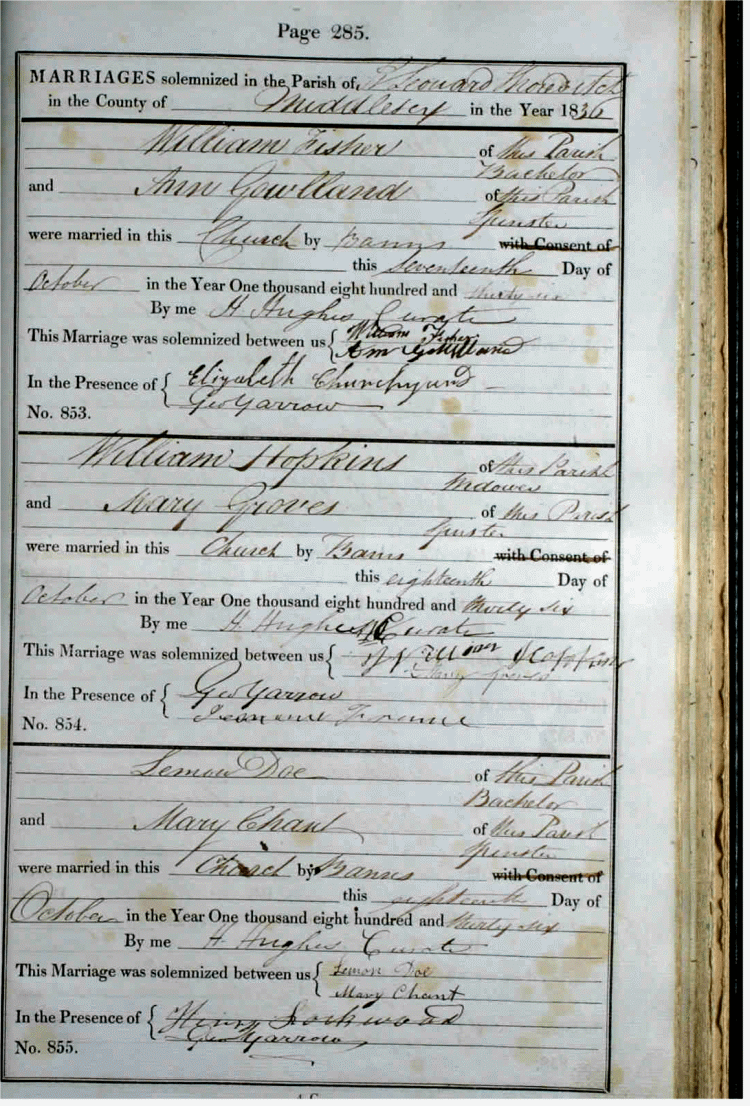 Page 285.
MARRIAGES solemnized in the Parish of St Leonard Shoreditch
in the County of Middlesex in the Year 1836
William Fisher of this Parish
Bachelor
and Ann Gowlland of this Parish
Spinster
were married in this Church by Banns with Consent of
this seventeenth Day of
October in the Year One thousand eight hundred and thirty six
By me H. Hughes Curate
This Marriage was solemnized between us { William Fisher
Ann Gowlland
In the Presence of { Elizabeth Churchyard
Geo Yarrow
No. 853.
William Hopkins of this Parish
Widower
and Mary Groves of this Parish
Spinster
were married in this Church by Banns with Consent of
this eighteenth Day of
October in the Year One thousand eight hundred and thirty six
By me H. Hughes Curate
This Marriage was solemnized between us { William Hopkins
Mary Groves
In the Presence of { Geo Yarrow
No. 854.
Lemon Doe of this Parish
Bachelor
and Mary Chant of this Parish
Spinster
were married in this Church by Banns with Consent of
this eighteenth Day of
October in the Year One thousand eight hundred and thirty six
By me H. Hughes Curate
This Marriage was solemnized between us { Lemon Doe
Mary Chant
In the Presence of { Henry Lockwood
Geo Yarrow
No. 855.